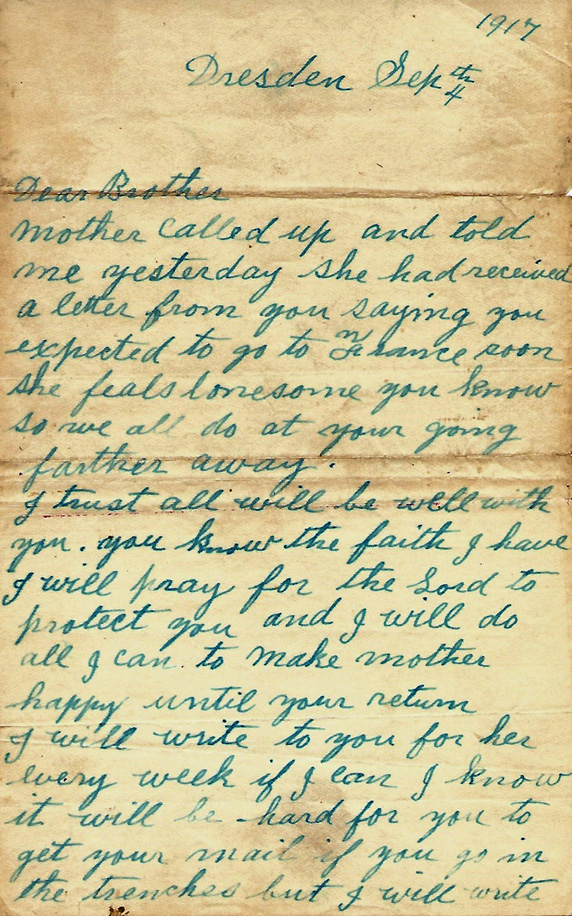 1917
Dresden Sep 4th
Dear Brother
Mother called up and told
me yesterday she had received
a letter from you saying you
expected to go to France soon
she feals lonesome you know
so we all do at your going
farther away.
I trust all will be well with
you. you know the faith I have
I will pray for the Lord to
protect you and I will do
all I can to make mother
happy until your return
I will write to you for her
every week if I can I know
it will be hard for you to
get your mail if you go in
the trenches but I will write